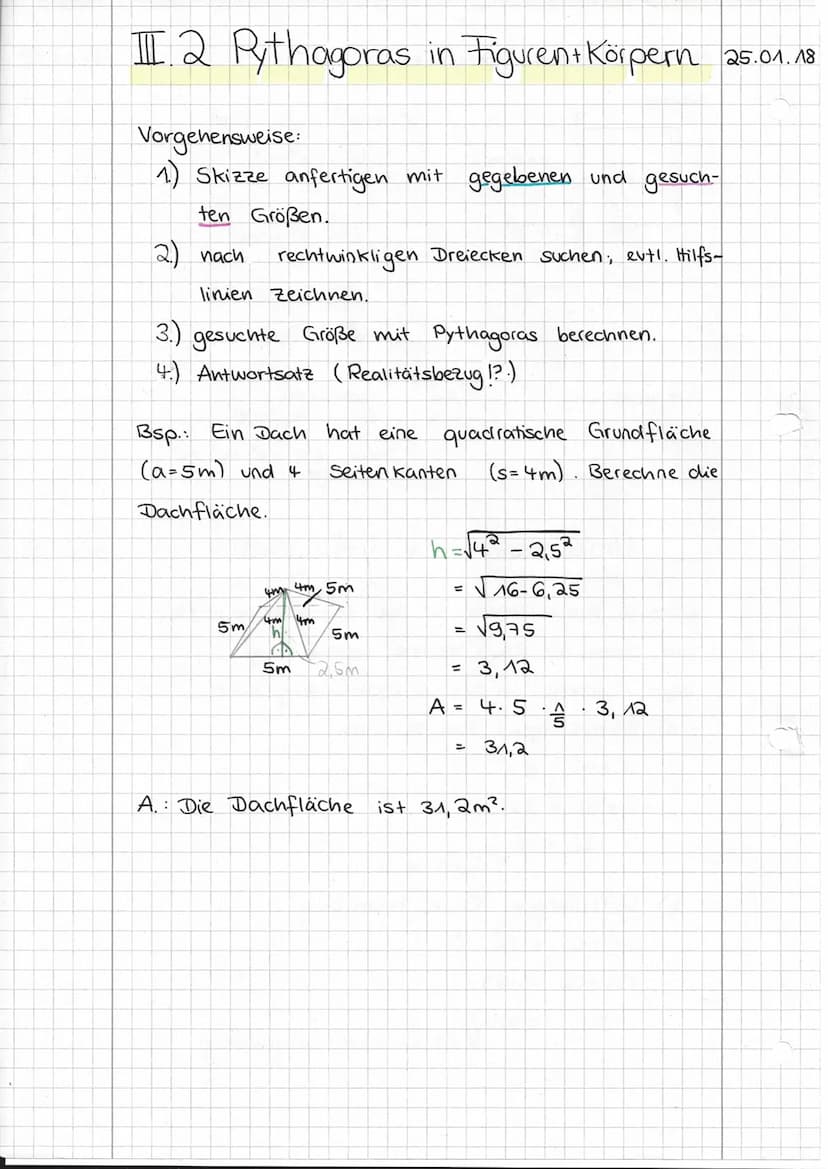 III.2 Pythagoras in Figuren+Körpern 25.01.18
Vorgehensweise:
1.) Skizze anfertigen mit gegebenen und gesuch-
ten Größen.
2.) nach rechtwinkligen Dreiecken suchen, evtl. Hilfs-
linien zeichnen.
3.) gesuchte Größe mit Pythagoras berechnen.
4.) Antwortsatz (Realitätsbezug!?.)
Bsp.: Ein Dach hat eine quadratische Grundfläche
(a=5m) und 4 Seitenkanten (s=4m). Berechne die
Dachfläche.
h=√4² - 2,5²
= √16-6,25
= √9,75
= 3,12
A = 4 · 5 · 1/5 · 3,12
= 31,2
4m 4m 5m
5m 4m 4m 5m
h
5m 2,5m
A.: Die Dachfläche ist 31,2m².